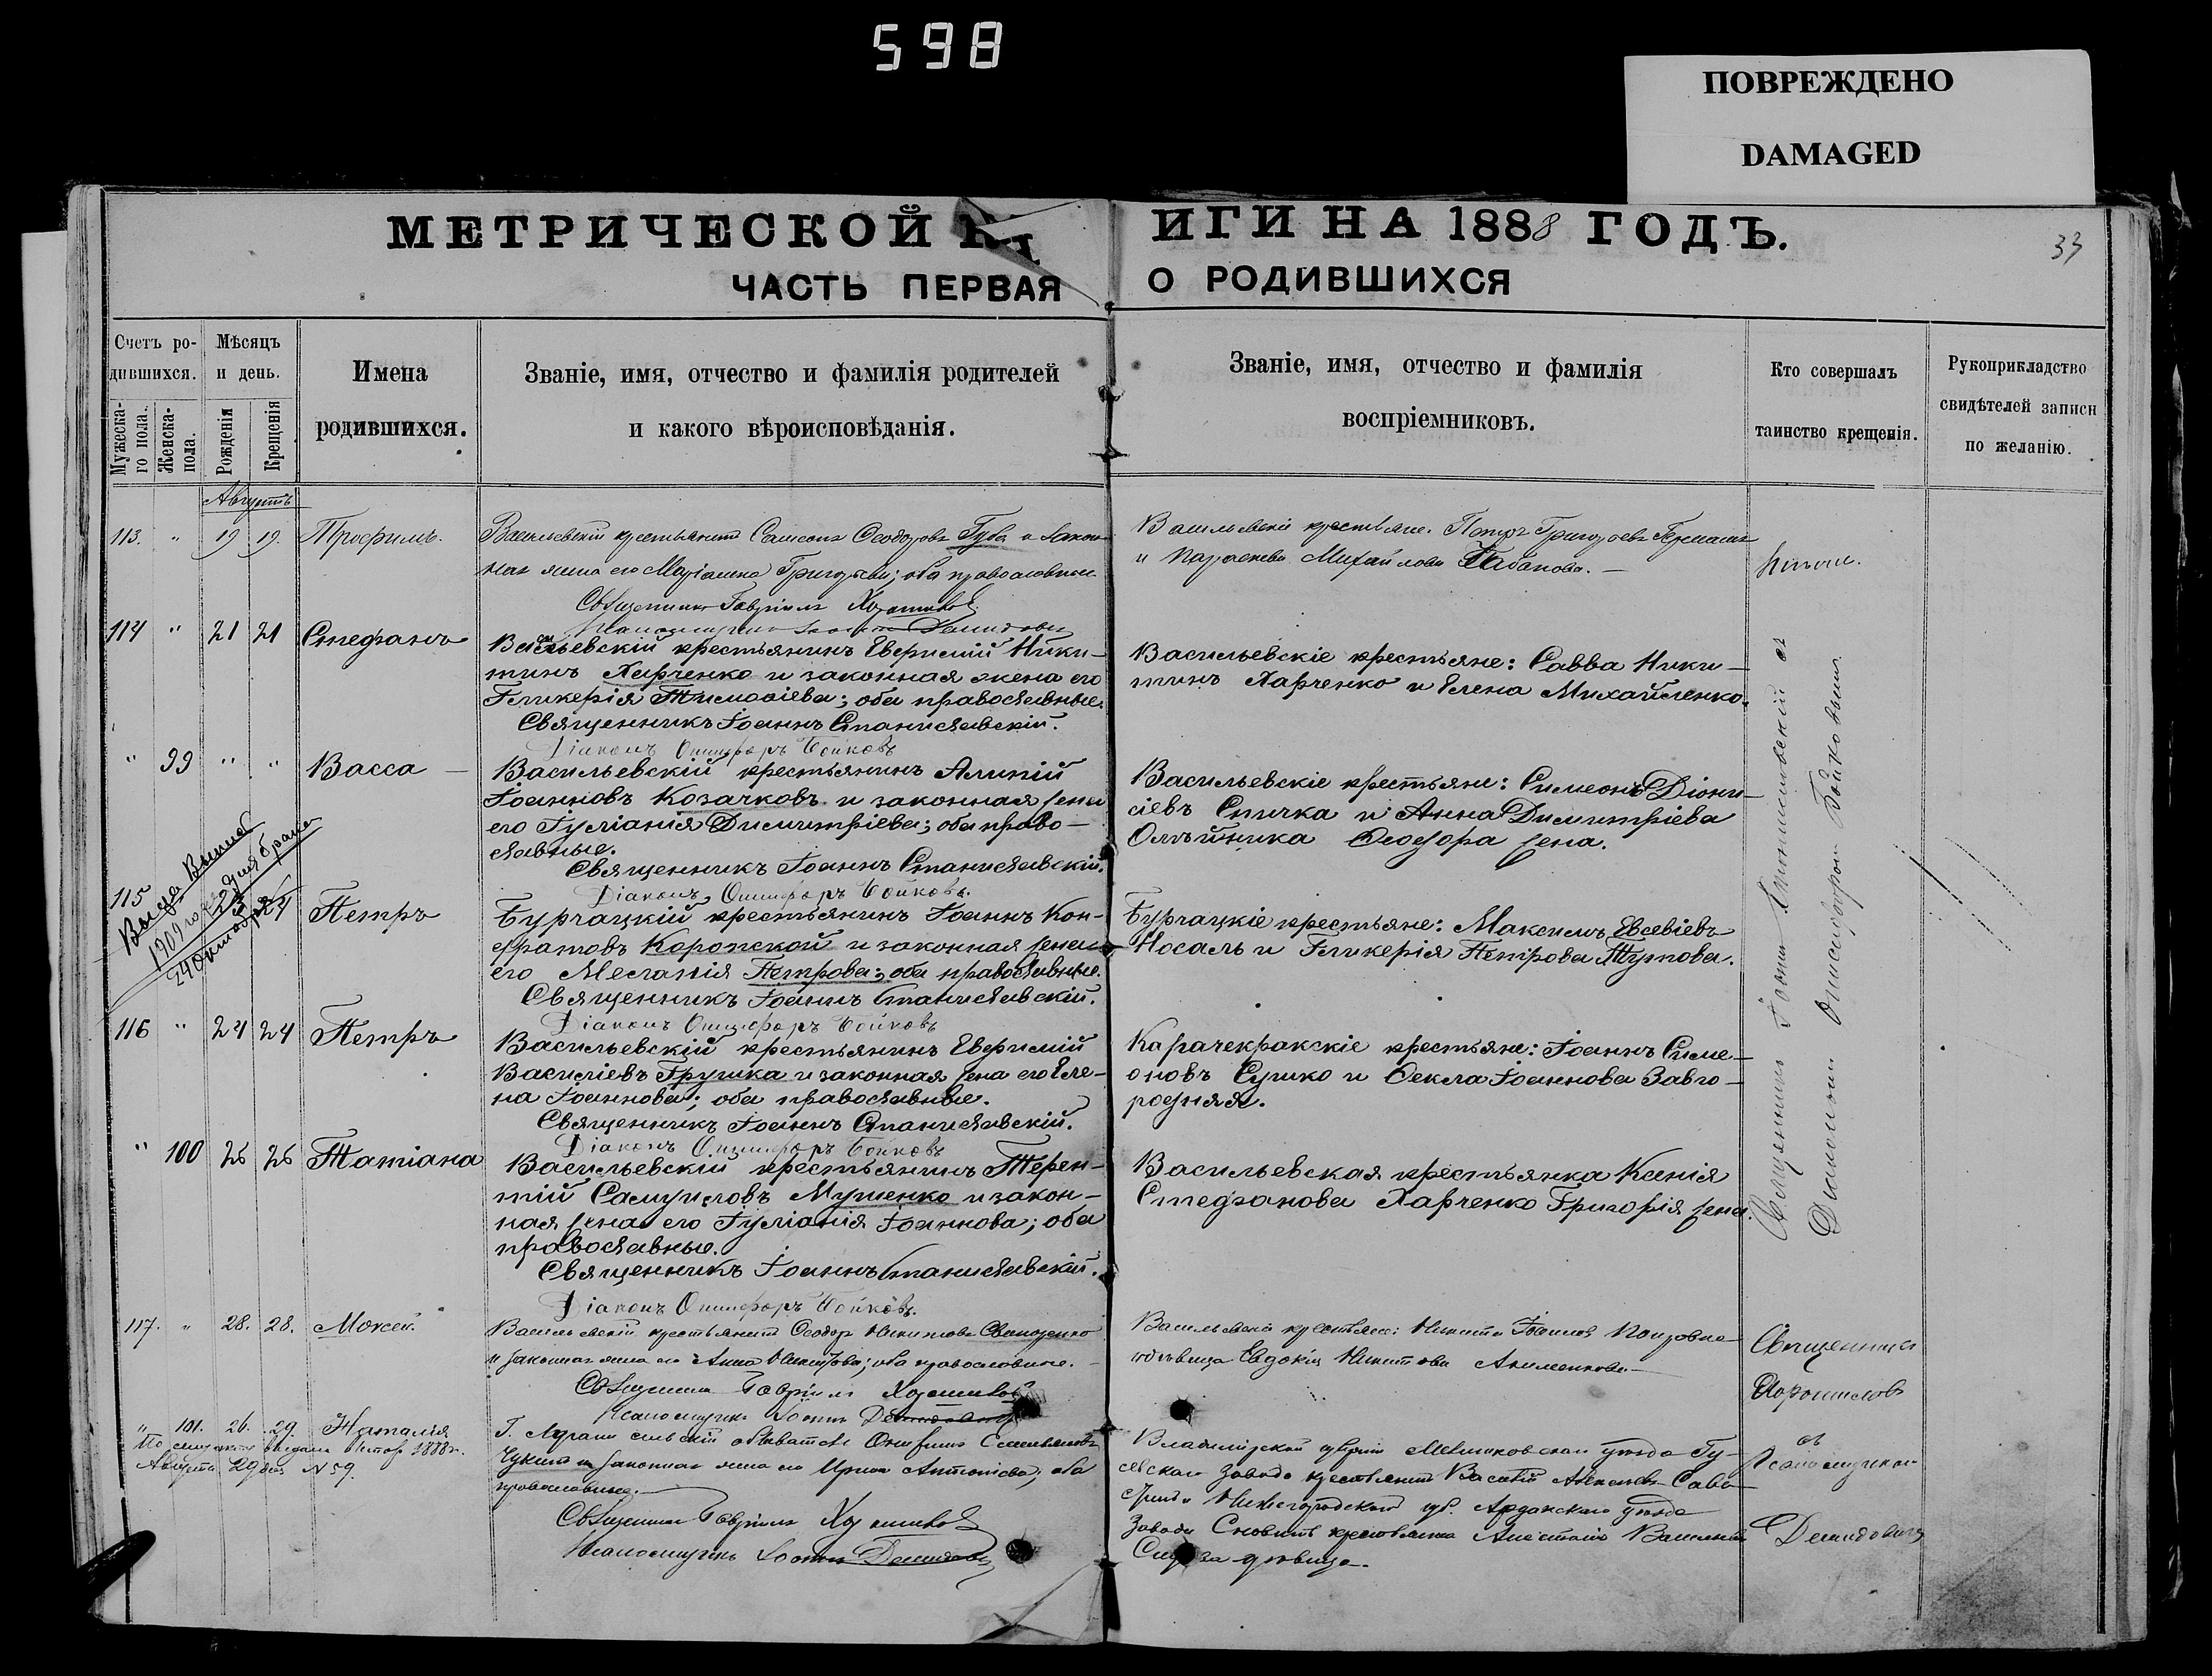 598
ПОВРЕЖДЕНО
DAMAGED
МЕТРИЧЕСКОЙ К
ИГИ НА 1888 ГОДЪ.
33
ЧАСТЬ ПЕРВАЯ
О РОДИВШИХСЯ
Счетъ ро-
дившихся.
Мужеска-
го пола.
Женска-
пола.
Мѣсяцъ
и день.
Рожденія
Крещенія
Имена
родившихся.
Званіе, имя, отчество и фамилія родителей
и какого вѣроисповѣданія.
Званіе, имя, отчество и фамилія
воспріемниковъ.
Кто совершалъ
таинство крещенія.
Рукоприкладство
свидѣтелей записи
по желанію.
Августъ
113. " 19 19. Трофимъ.
Васильевскій крестьянинъ Самсонъ Ѳеодоровъ Губа и закон-
ная жена его Маріамна Григорьева; оба православные
Священникъ Гавріилъ
Псаломщикъ Іоаннъ Демидовъ
Васильевскіе крестьяне. Петръ Григорьевъ
и Параскева Михайлова
114 " 21 21 Стефанъ
Васильевскій крестьянинъ Евфимій Ники-
тинъ Харченко и законная жена его
Гликерія Тимоѳіева; оба православные.
Священникъ Іоаннъ Станиславскій.
Діаконъ Онисифоръ Бойковъ
Васильевскіе крестьяне: Савва Ники-
тинъ Харченко и Елена Михайленко.
" 99 " " Васса —
Васильевскій крестьянинъ Алипій
Іоанновъ Козачковъ и законная жена
его Іуліанія Димитріева; оба право-
славные.
Священникъ Іоаннъ Станиславскій.
Діаконъ, Онисифоръ Бойковъ.
Васильевскіе крестьяне: Симеонъ Діони-
сіевъ Спичка и Анна Димитріева
Олѣйника Ѳеодора жена.
115 23 24 Петръ
1909
24 октября
Бурчацкій крестьянинъ Іоаннъ Кон-
дратовъ Коропской и законная жена
его Меланія Петрова; оба православные.
Священникъ Іоаннъ Станиславскій.
Діаконъ Онисифоръ Бойковъ
Бурчацкіе крестьяне: Максимъ Евсевіевъ
Носаль и Гликерія Петрова Тутова.
116 " 24 24 Петръ
Васильевскій крестьянинъ Евфимій
Василіевъ Грушка и законная жена его Еле-
на Іоаннова; оба православные.
Священникъ Іоаннъ Станиславскій.
Діаконъ Онисифоръ Бойковъ
Карачекракскіе крестьяне: Іоаннъ Симе-
оновъ Сушко и Ѳекла Іоаннова Завго-
родняя.
" 100 26 26 Татіана
Васильевскій крестьянинъ Терен-
тій Самуиловъ Мушенко и закон-
ная жена его Іуліанія Іоаннова; оба
православные.
Священникъ Іоаннъ Станиславскій.
Діаконъ Онисифоръ Бойковъ.
Васильевская крестьянка Ксенія
Стефанова Харченко Григорія жена.
Священникъ Іоаннъ Станиславскій съ
Діакономъ Онисифоромъ Бойковымъ.
117. " 28. 28. Моѵсей.
Васильевскій крестьянинъ Ѳеодоръ Никитовъ
и законная жена его Анна Никитова; оба православные.
Священникъ Гавріилъ
Псаломщикъ Іоаннъ Демидовъ
Васильевскіе крестьяне: Никита
дѣвица Евдокія Никитова
Священникъ
съ
Псаломщикомъ
Демидовымъ
" 101. 26. 29. Наталія
1888 г.
Августа 29 дня №59.
законная жена его Ирина Антоніева; оба
православные.
Священникъ Гавріилъ
Псаломщикъ Іоаннъ Демидовъ
Владимірской губерніи Меленковскаго уѣзда Гу-
севскаго завода крестьянинъ Василій
Нижегородской губ. Ардатовскаго уѣзда
завода крестьянка Анастасія
дѣвица.